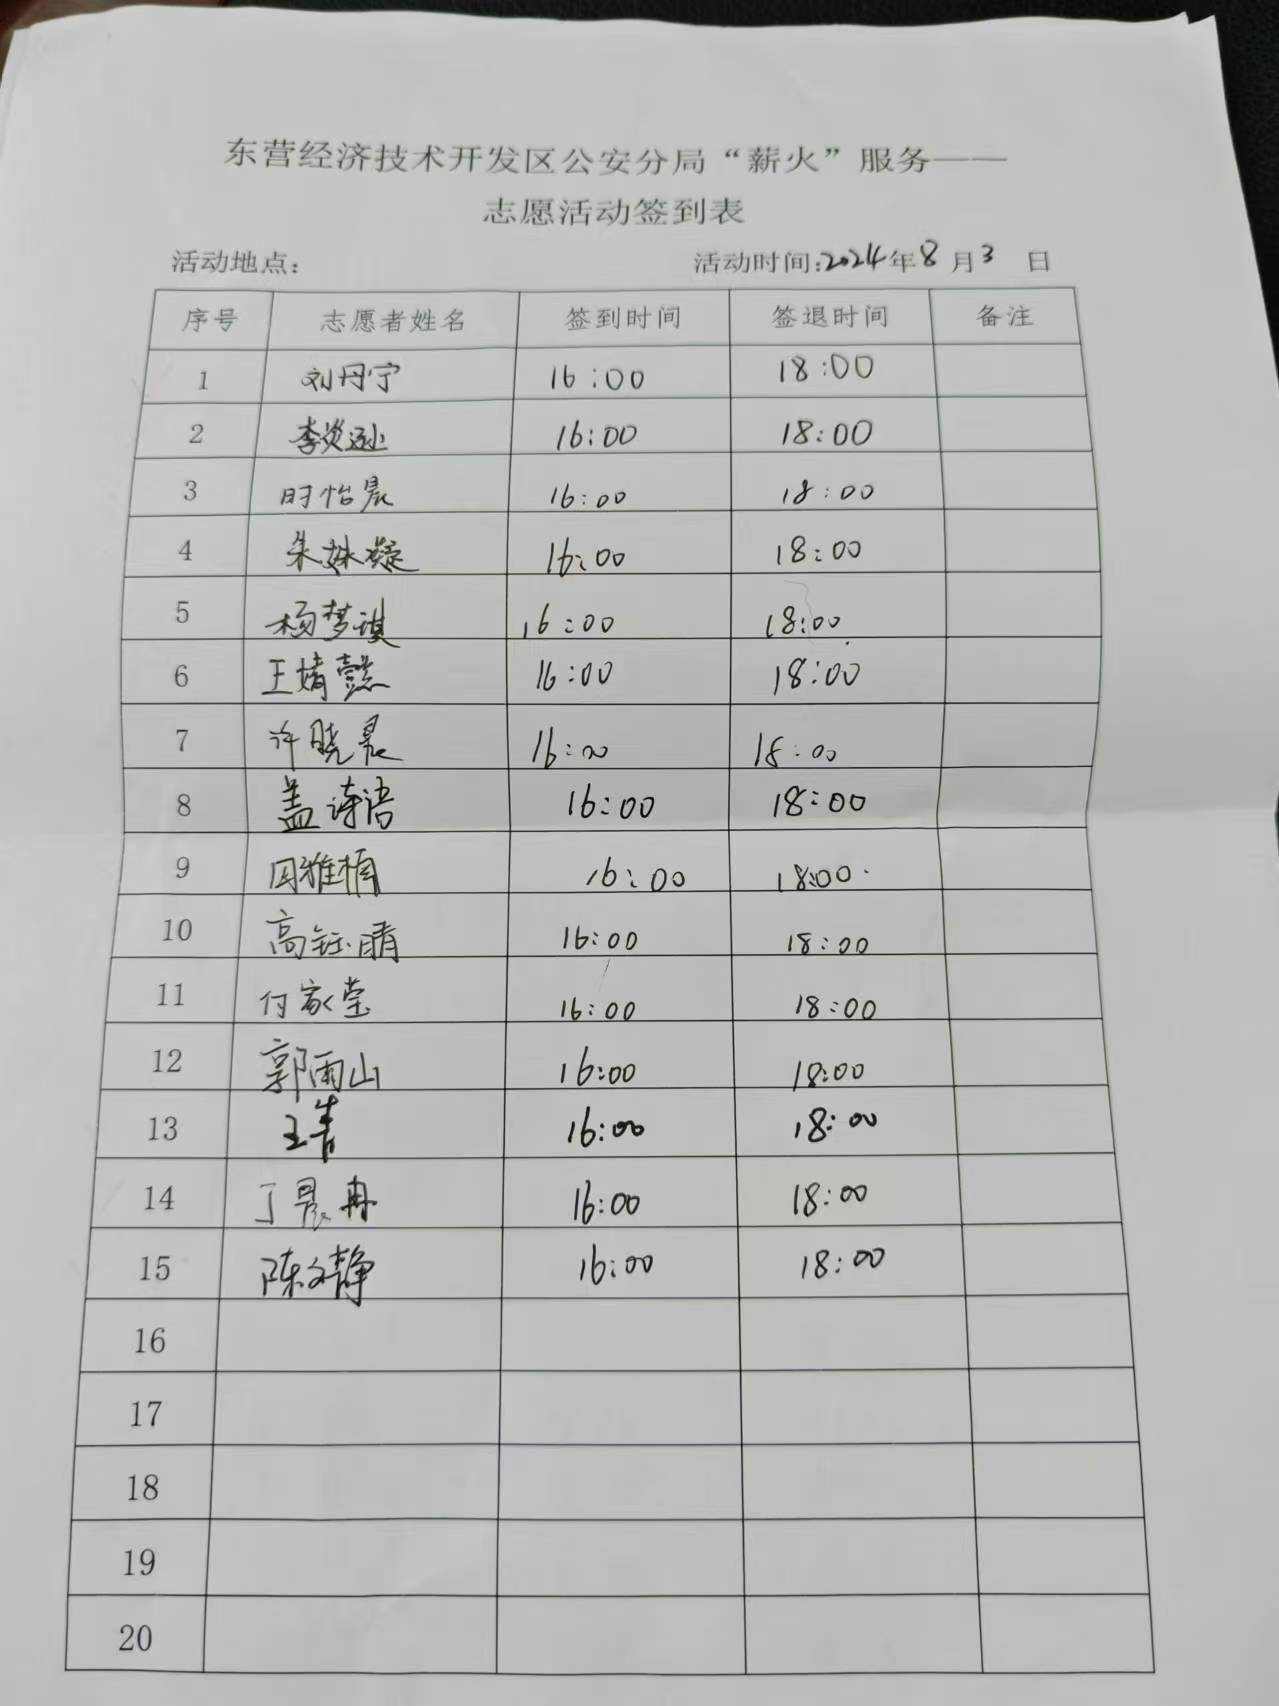 东营经济技术开发区公安分局“薪火”服务——
志愿活动签到表
活动地点： 活动时间:2024年8月3日
序号 志愿者姓名 签到时间 签退时间 备注
1 刘丹宁 16:00 18:00
2 李炎逊 16:00 18:00
3 时怡晨 16:00 18:00
4 朱姝凝 16:00 18:00
5 杨梦琪 16:00 18:00
6 王婧懿 16:00 18:00
7 许晓晨 16:00 18:00
8 盖诗语 16:00 18:00
9 16:00 18:00
10 高钰晴 16:00 18:00
11 付家莹 16:00 18:00
12 郭雨山 16:00 18:00
13 王青 16:00 18:00
14 丁晨冉 16:00 18:00
15 陈文静 16:00 18:00
16
17
18
19
20